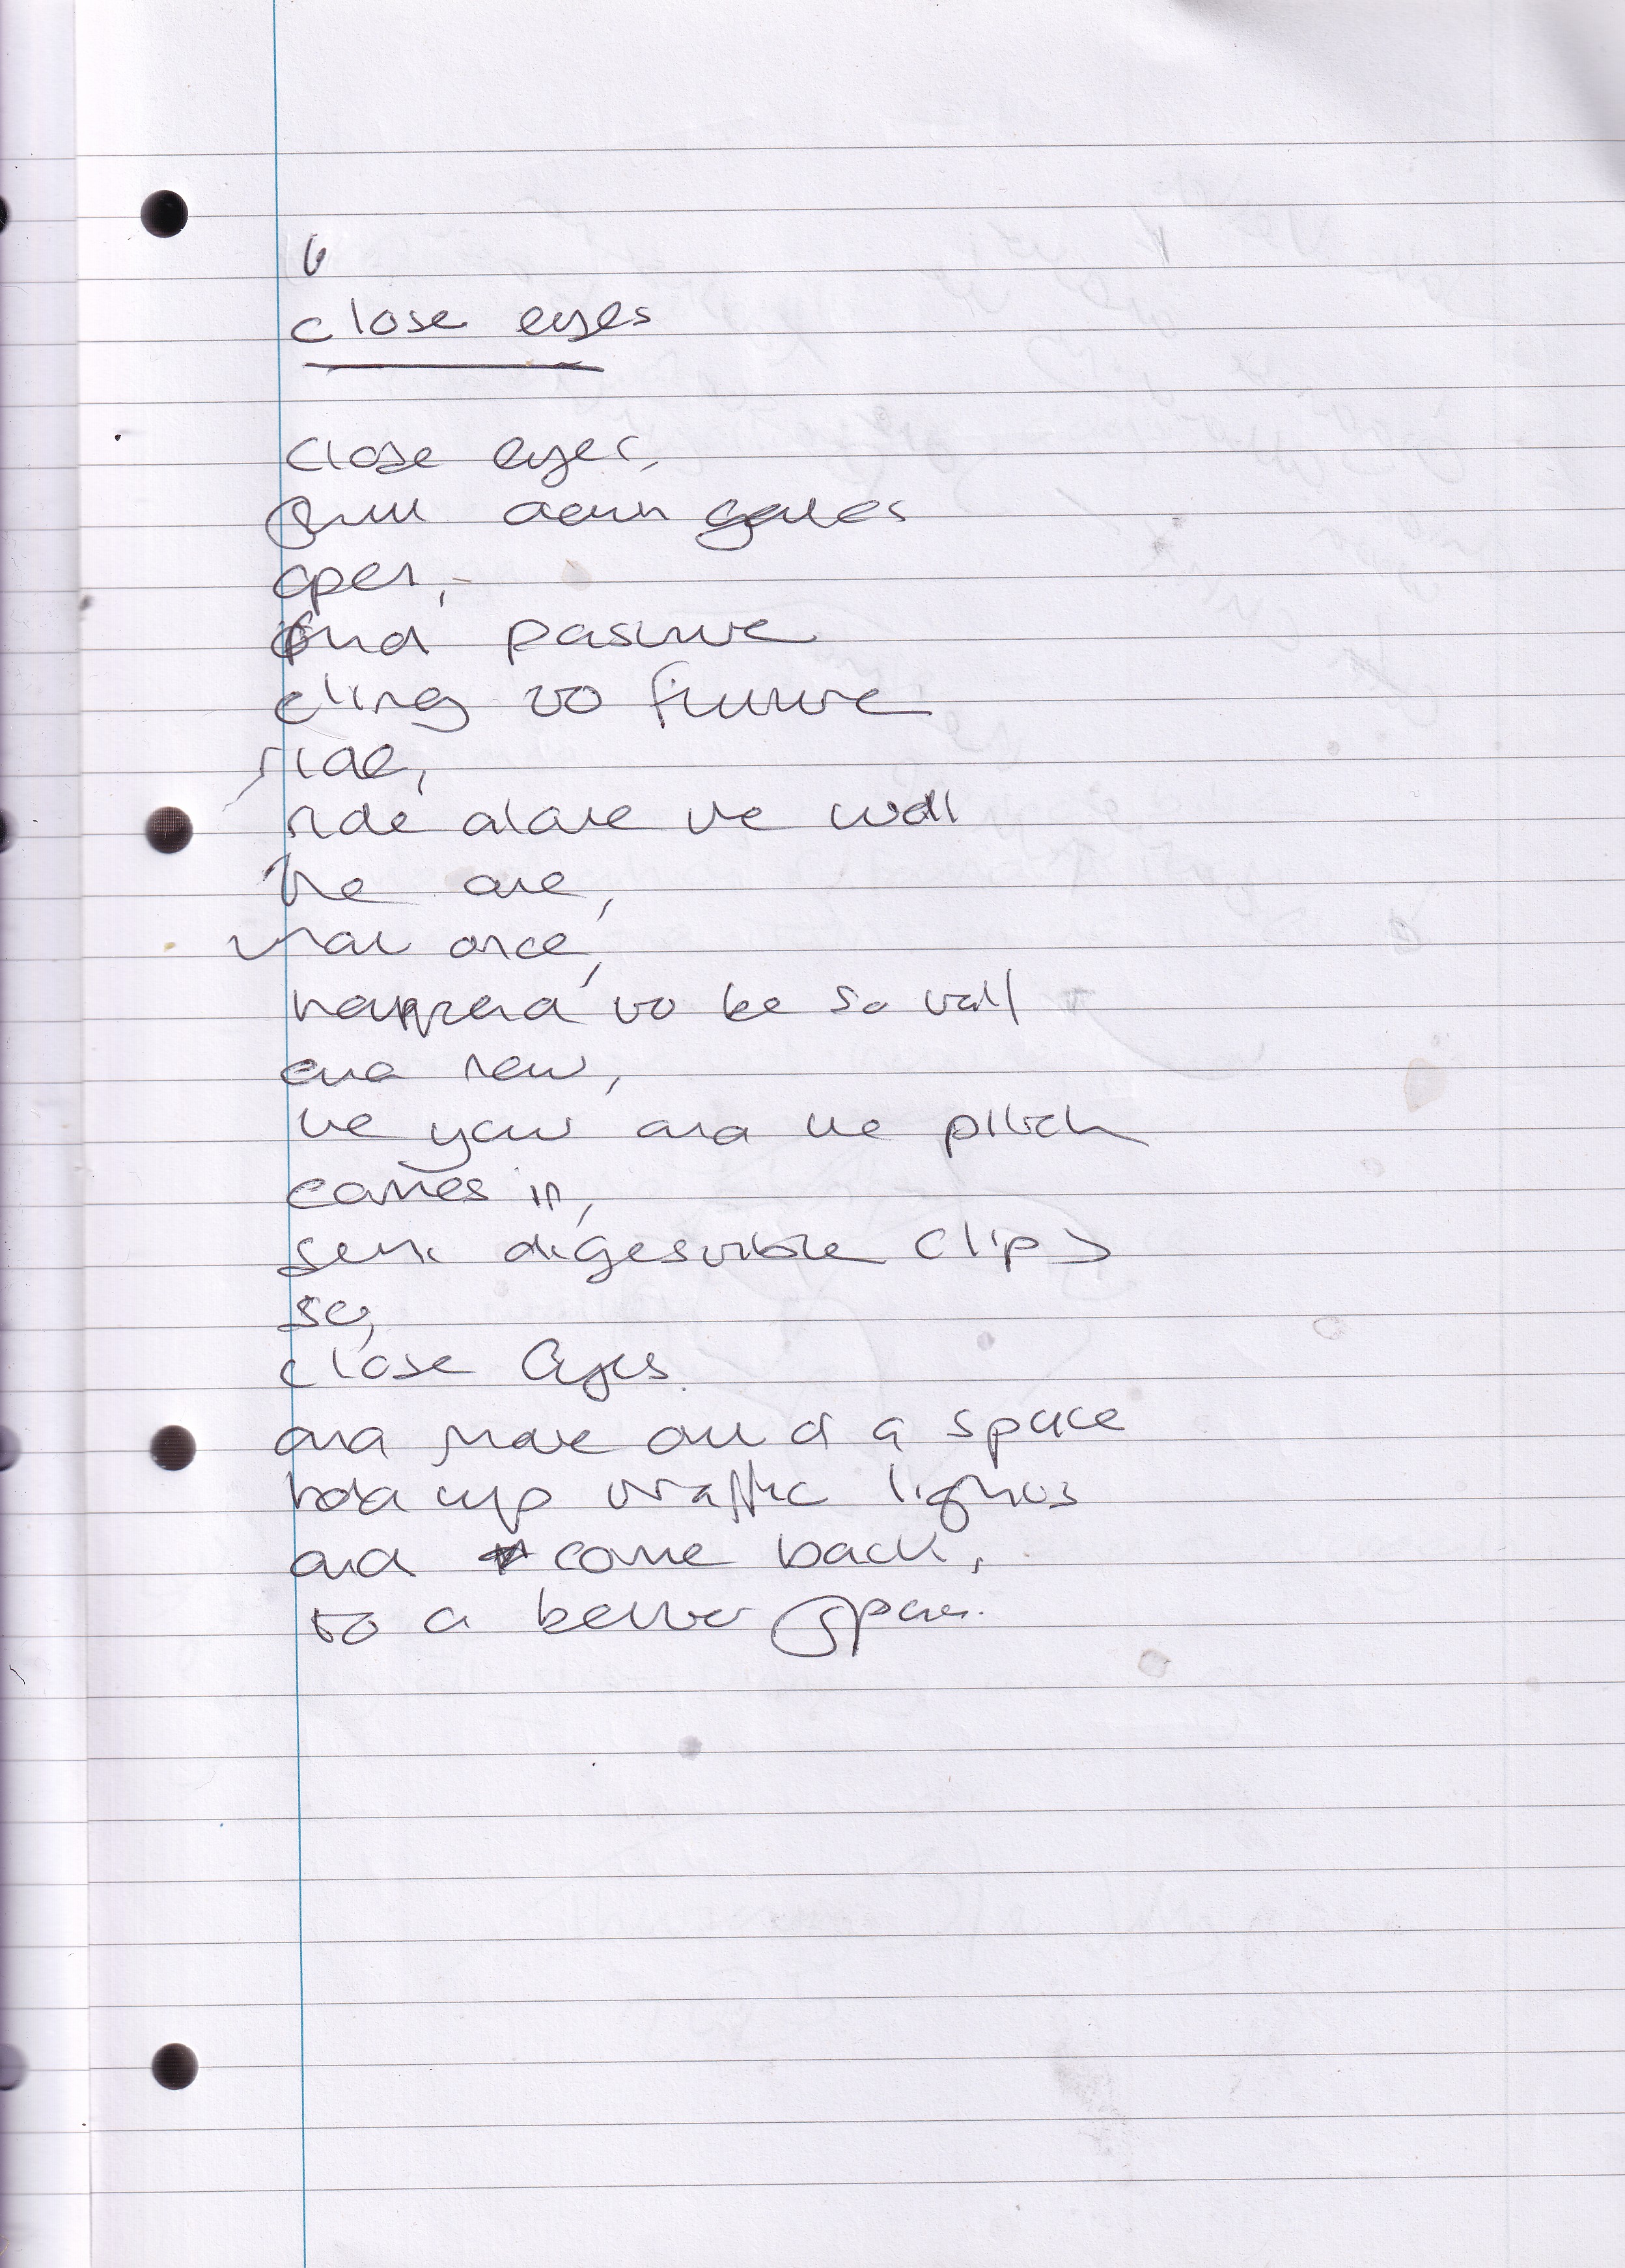 6
close eyes
close eyes,
pull down gates
open,
find pasture
cling to future
ride,
ride alone the wall
the one,
that once,
happened to be so tall
and new,
the yaw and the pitch
comes in,
semi digestible clips
so,
close eyes.
and move out of a space
hold up traffic lights
and come back,
to a better space.